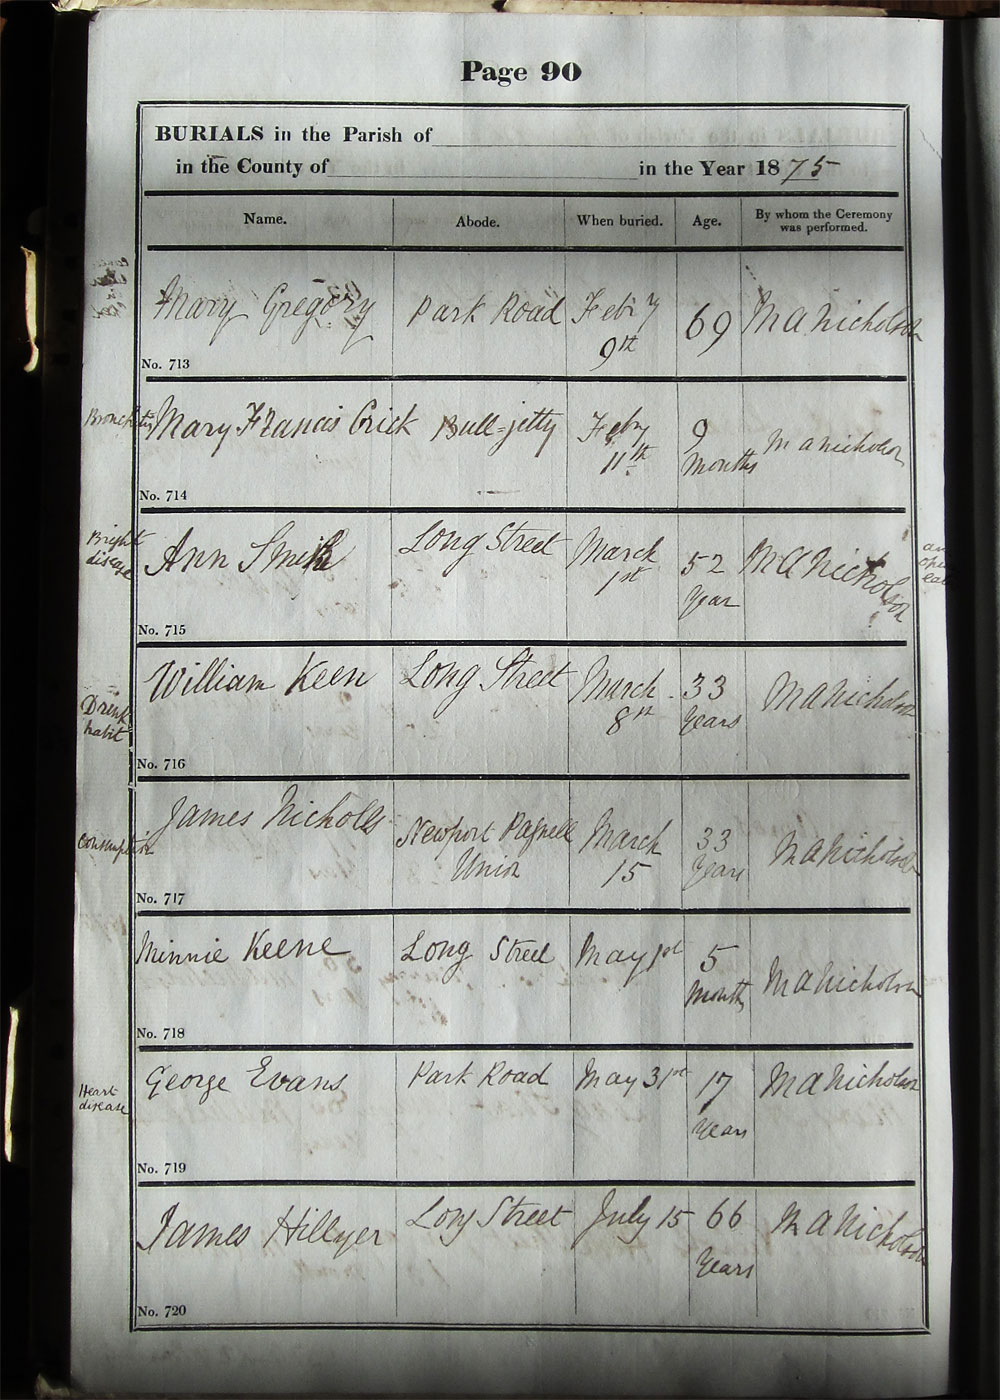 Page 90
BURIALS in the Parish of
in the County of in the Year 1875
Name. Abode. When buried. Age. By whom the Ceremony was performed.
Mary Gregory Park Road Febry 9th 69 M A Nicholson
No. 713
Bronchitis Mary Francis Crick Bull-jetty Feby 11th 9 Months M A Nicholson
No. 714
Bright disease Ann Smith Long Street March 1st 52 Year M A Nicholson
No. 715
Drink habit William Keen Long Street March 8th 33 Years M A Nicholson
No. 716
Consumption James Nicholls Newport Pagnell Union March 15 33 Years M A Nicholson
No. 717
Minnie Keene Long Street May 1st 5 Months M A Nicholson
No. 718
Heart disease George Evans Park Road May 31st 17 Years M A Nicholson
No. 719
James Hillyer Long Street July 15 66 Years M A Nicholson
No. 720